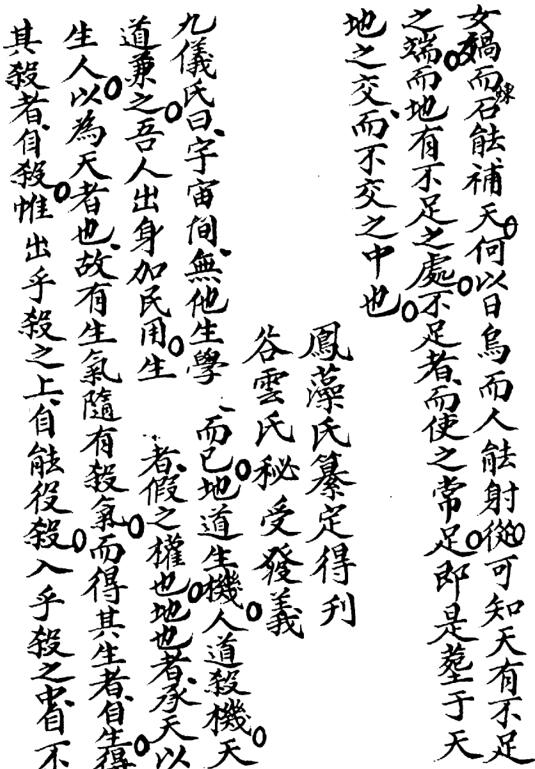 女媧而鍊石能補天何以日烏而人能射從可知天有不足
之端而地有不足之處不足者而使之常足即是塟于天
地之交而不交之中也
鳳藻氏纂定得刋
谷雲氏秘受發義
九儀氏曰宇宙間無他生學而已地道生機人道殺機天
道兼之吾人出身加民用生者假之權也地也者承天以
生人以為天者也故有生氣隨有殺氣而得其生者自生得
其殺者自殺惟出乎殺之上自能役殺入乎殺之中自不